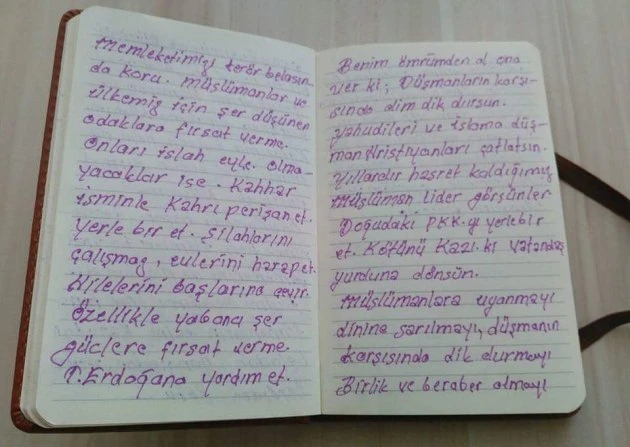 Memleketimizi terör belasın-
da koru. Müslümanlar ve
ülkemiz için şer düşünen
odaklara fırsat verme.
Onları islah eyle. Olma-
yacaklar ise. Kahhar
isminle Kahrı perişan et.
Yerle bir et. Silahlarını
çalışmaz, evlerini harap et.
Hilelerini başlarına çevir.
Özellikle yabancı şer
güçlere fırsat verme.
T. Erdoğana yardım et.
Benim ömrümden al ona
ver ki; Düşmanların karşı-
sında dim dik dursun.
Yahudileri ve islama düş-
man Hristiyanları çatlatsın.
Yıllardır hasret kaldığımız
Müslüman lider görsünler.
Doğudaki PKK.yı yerlebir
et. Kökünü Kazı. ki vatandaş
yurduna dönsün.
Müslümanlara uyanmayı
dinine sarılmayı, düşmanın
karşısında dik durmayı
Birlik ve beraber olmayı